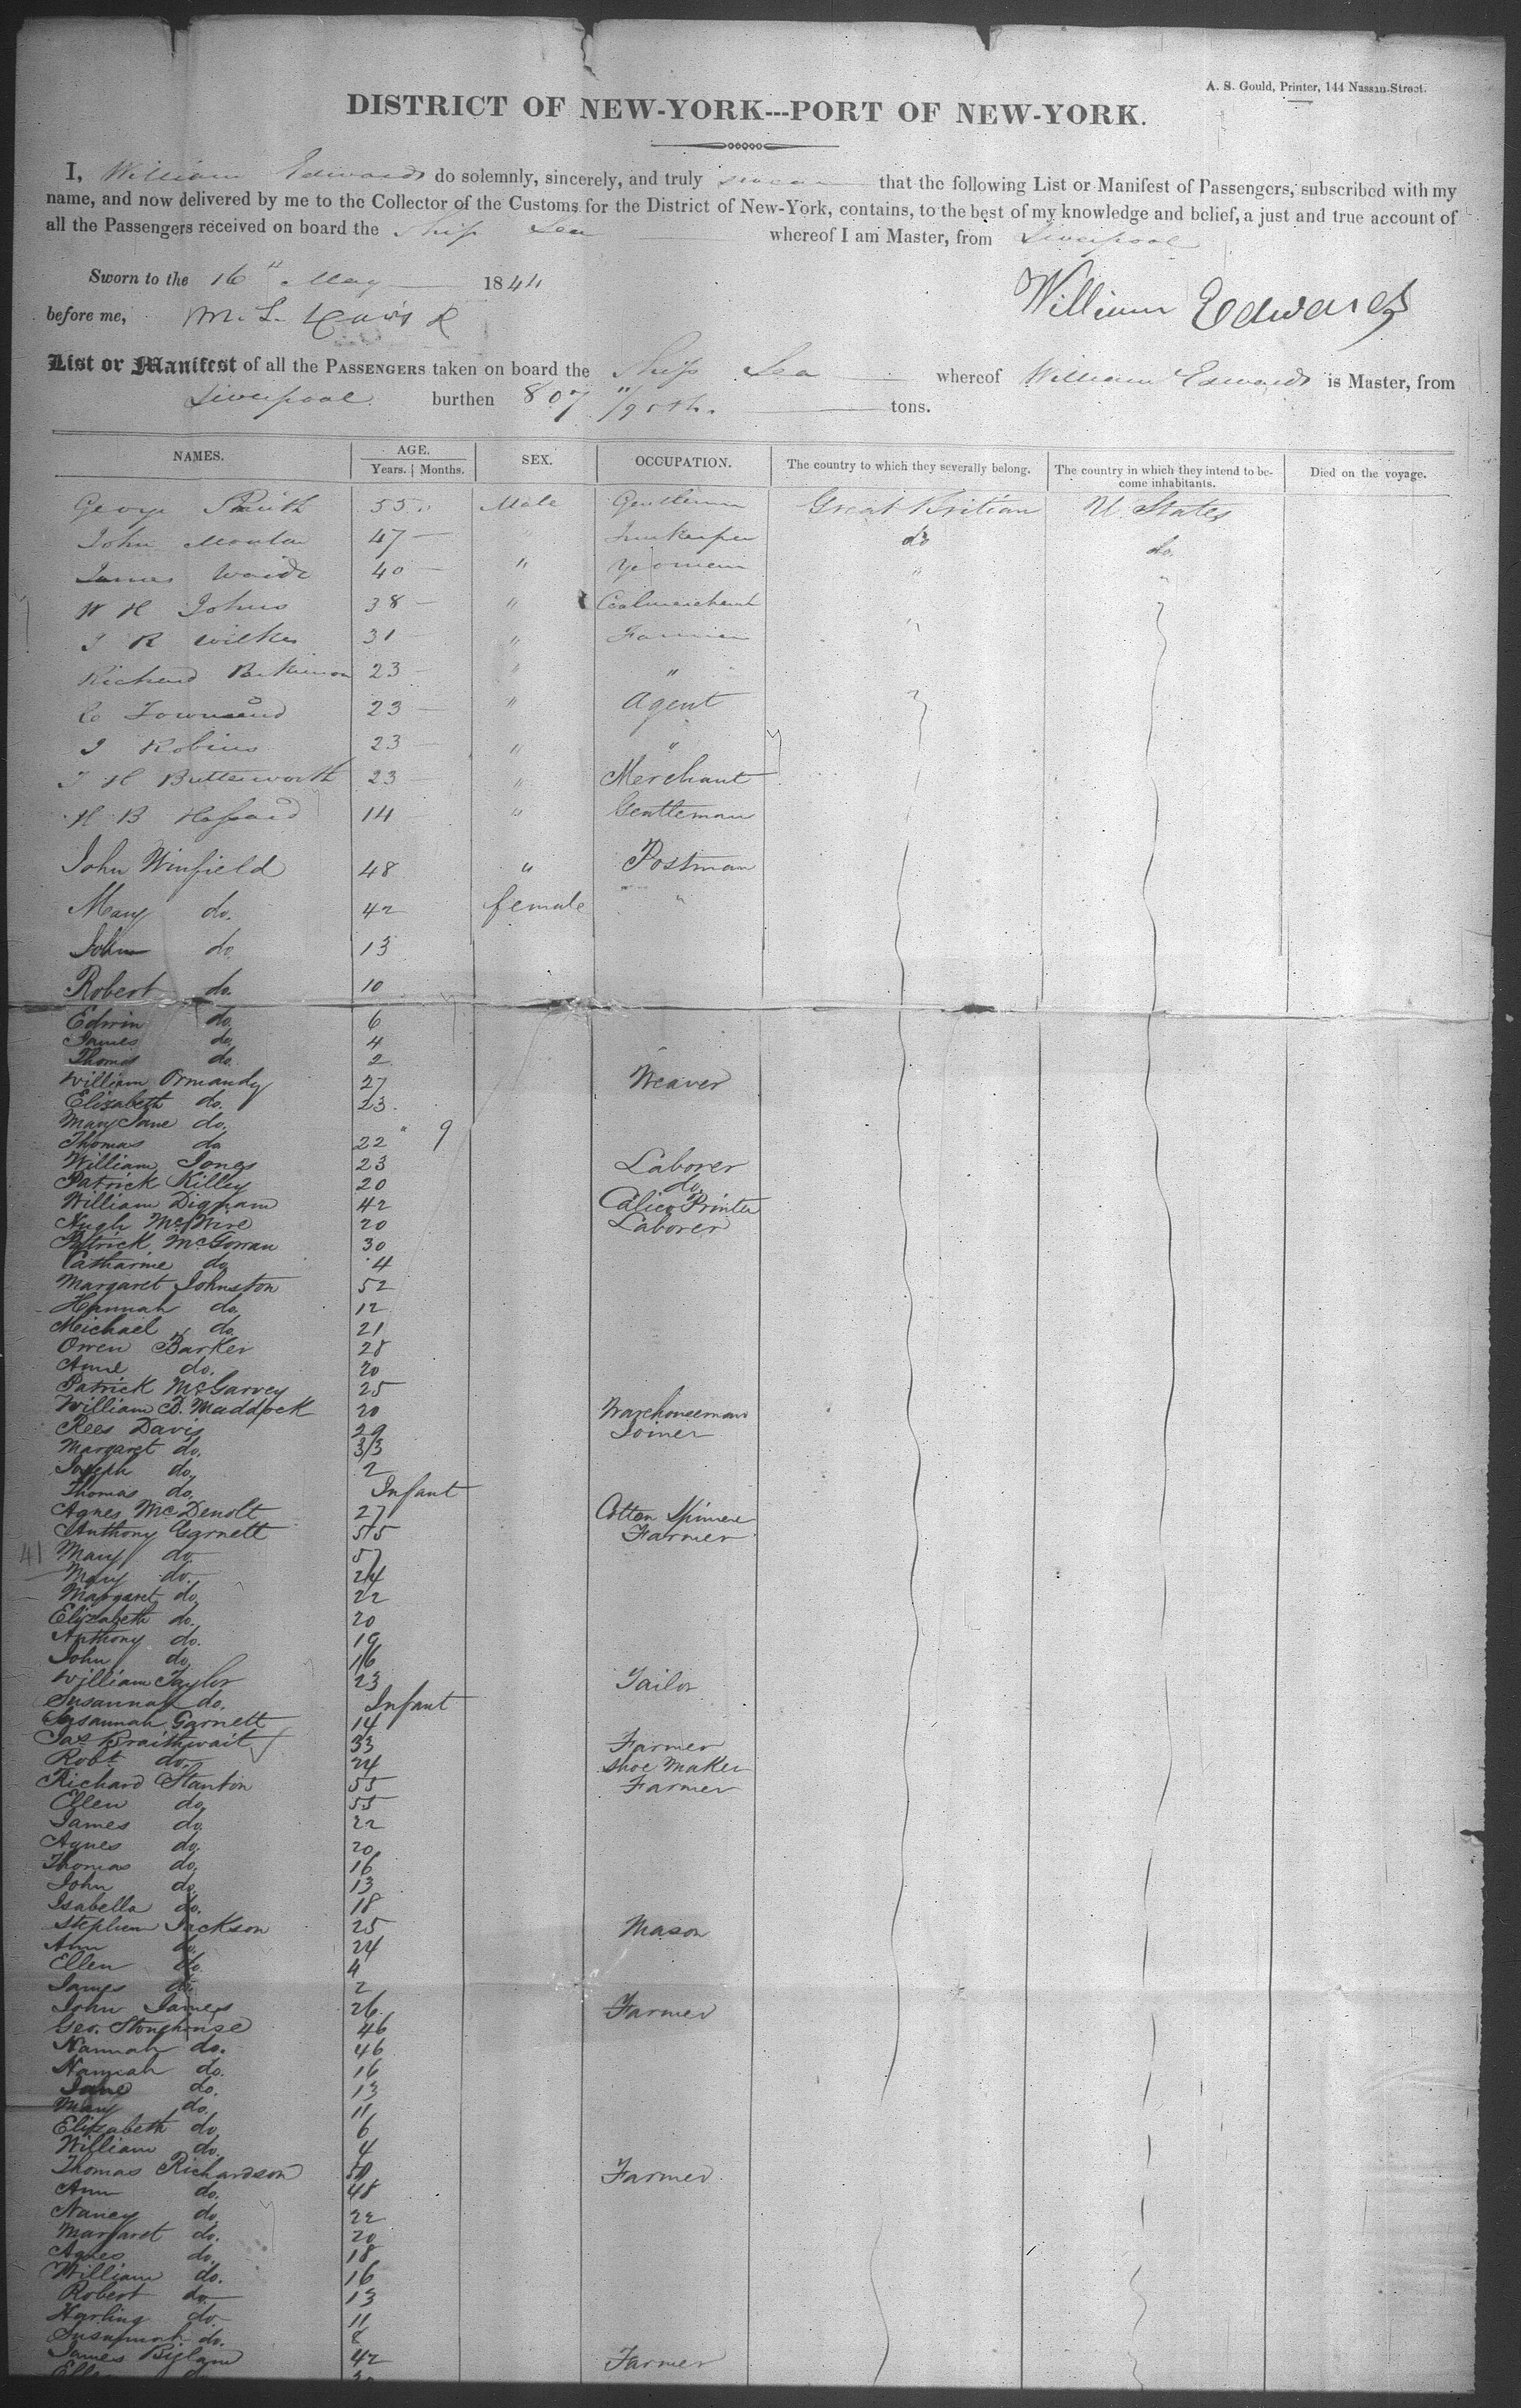 A. S. Gould, Printer, 144 Nassau-Street.
DISTRICT OF NEW-YORK---PORT OF NEW-YORK.
I, William Edwards do solemnly, sincerely, and truly swear that the following List or Manifest of Passengers, subscribed with my
name, and now delivered by me to the Collector of the Customs for the District of New-York, contains, to the best of my knowledge and belief, a just and true account of
all the Passengers received on board the Ship Sea whereof I am Master, from Liverpool
Sworn to the 16th May 1844
before me, M. L. Davis
William Edwards
List or Manifest of all the PASSENGERS taken on board the Ship Sea whereof William Edwards is Master, from
Liverpool burthen 807 tons.
NAMES. AGE. Years. Months. SEX. OCCUPATION. The country to which they severally belong. The country in which they intend to become inhabitants. Died on the voyage.
George Smith 55 Male Gentleman Great Britian U States
John 47 " Innkeeper do do.
James 40 " Yeoman " "
W H Johns 38 " Coalmerchant
J R Wilkes 31 " Farmer "
Richard 23 " "
Townsend 23 " Agent
J Robins 23 " "
J H Butterworth 23 " Merchant
H B 14 " Gentleman
John Winfield 48 " Postman
Mary do. 42 female "
John do 13
Robert do. 10
Edwin do. 6
James do. 4
Thomas do. 2
William Ormandy 27 Weaver
Elizabeth do. 23.
Mary Jane do. " 9
Thomas do 22
William Jones 23 Laborer
Patrick Killey 20 do.
William Dignam 42 Calico Printer
Hugh 20 Laborer
Patrick McGowan 30
Catharine do 4
Margaret Johnston 52
Hannah do. 12
Meichael do 21
Owen Barker 28
Anne do. 20
Patrick McGarvey 25
William D. Maddock 20 Warehouseman
Rees Davis 29 Joiner
Margaret do. 33
Joseph do. 2
Thomas do. Infant
Agnes 27 Cotton Spinner
Anthony Garnett 55 Farmer
41 Mary do 57
Mary do. 24
Margaret do. 22
Elizabeth do. 20
Anthony do. 19
John do. 16
William Taylor 23 Tailor
Susannah do. Infant
Susannah Garnett 14
Jas Braithwait 33 Farmer
Robt do. 24 Shoe Maker
Richard Stanton 55 Farmer
Ellen do. 55
James do. 22
Agnes do. 20
Thomas do. 16
John do. 13
Isabella do. 18
Stephen Jackson 25 Mason
Ann do. 24
Ellen do. 4
James do. 2
John James 26 Farmer
Geo. Stonghouse 46
Hannah do. 46
Hannah do. 16
Jane do. 13
Mary do. 11
Elizabeth do. 6
William do. 4
Thomas Richardson 50 Farmer
Ann do. 48
Nancy do. 22
Margaret do. 20
Agnes do. 18
William do. 16
Robert do 13
Harling do 11
Susannah do. 8
James 42 Farmer
Ellen do